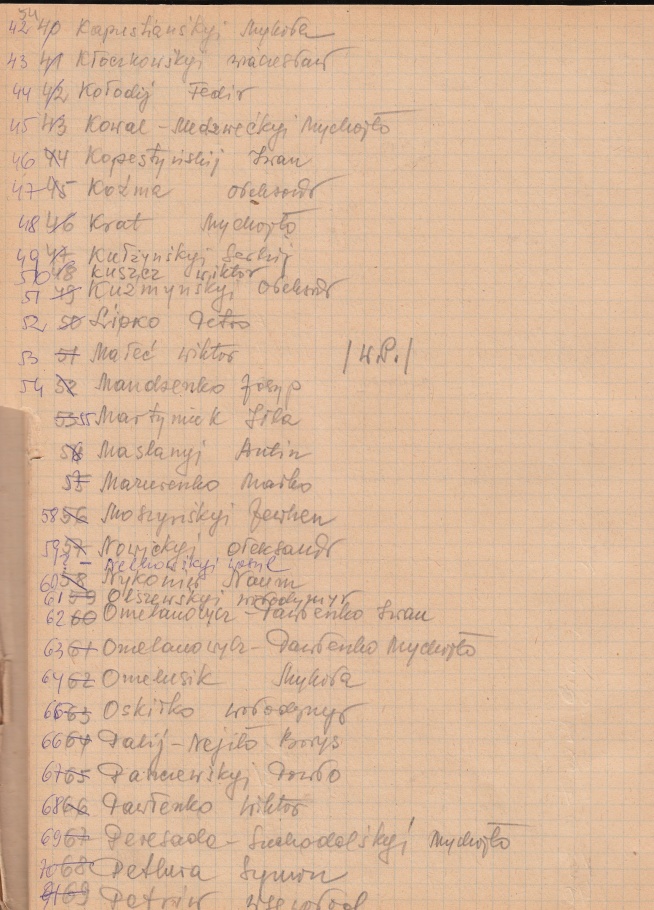 42 40 Kapustianśkyj Mykoła
43 41 Kłoczkowśkyj Waczesław
44 42 Kołodij Fedir
45 43 Kowal-Medzwećkyj Mychajło
46 44 Kopestynśkij Iwan
47 45 Koźma Ołeksandr
48 46 Krat Mychajło
49 47 Kułżynśkyj Serhij
50 48 Kuszcz Wiktor
51 49 Kuźmynśkyj Ołeksandr
52 50 Lipko Petro
53 51 Małeć Wiktor /W.P./
54 52 Mandzenko Josyp
53 55 Martyniuk Illa
54 Masłanyj Antin
55 Mazurenko Marko
58 56 Moszynśkyj Jewhen
59 57 Nowićkyj Ołeksandr
Wasyl
60 58 Nykoniw Naum
61 59 Olszewśkyj Wołodymyr
62 60 Omelanowycz-Pawłenko Iwan
63 61 Omelanowycz-Pawłenko Mychajło
64 62 Omelusik Mykoła
65 63 Oskiłko Wołodymyr
66 64 Palij-Nejiło Borys
67 65 Panczewśkyj Pawło
68 66 Pawłenko Wiktor
69 67 Peresada-Suchodolśkyj Mychajło
70 68 Petlura Symon
69 Petriw Wsewołod